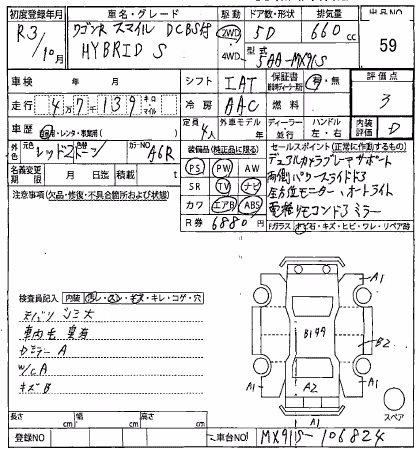 初度登録年月 車名・グレード 駆動 ドア数・形状 排気量 出品NO
R3/10月 ワゴンR スマイル DCBS付 HYBRID S 2WD 4WD 5D 660cc 59
型式 5AA-MX91S
車検 年 月 シフト IAT 保証書 有・無 評価点
走行 4万7千139キロ マイル 冷房 AAC 燃料 3
車歴 自家用・レンタ・事業用( ) 定員 4人 外車モデル 年 ディーラー 並行 ハンドル 左・右 内装評価 D
外色 元色 レッド2トーン 色替 カラーNO A6R
名義変更期限 月 日 迄 積載 t
注意事項(欠品・修復・不具合箇所および状態)
装備品(純正品に限る)
PS PW AW
SR TV ナビ
カワ エアB ABS
R券 6880円
セールスポイント(正常に作動するもの)
デュアルカメラブレーキサポート
両側パワースライドドア
全方位モニター、オートライト
電格リモコンドアミラー
Fガラス トビ石・キズ・ヒビ・ワレ・リペア跡
検査員記入 内装 ・キズ・キレ・コゲ・穴
シミ大
車内毛
ドミラー A
W/C A
キズ B
A1
B199
B2
A1 A2 A1
A1
スペア
長さ cm 幅 cm 高さ cm
登録NO 車台NO MX91S-106824